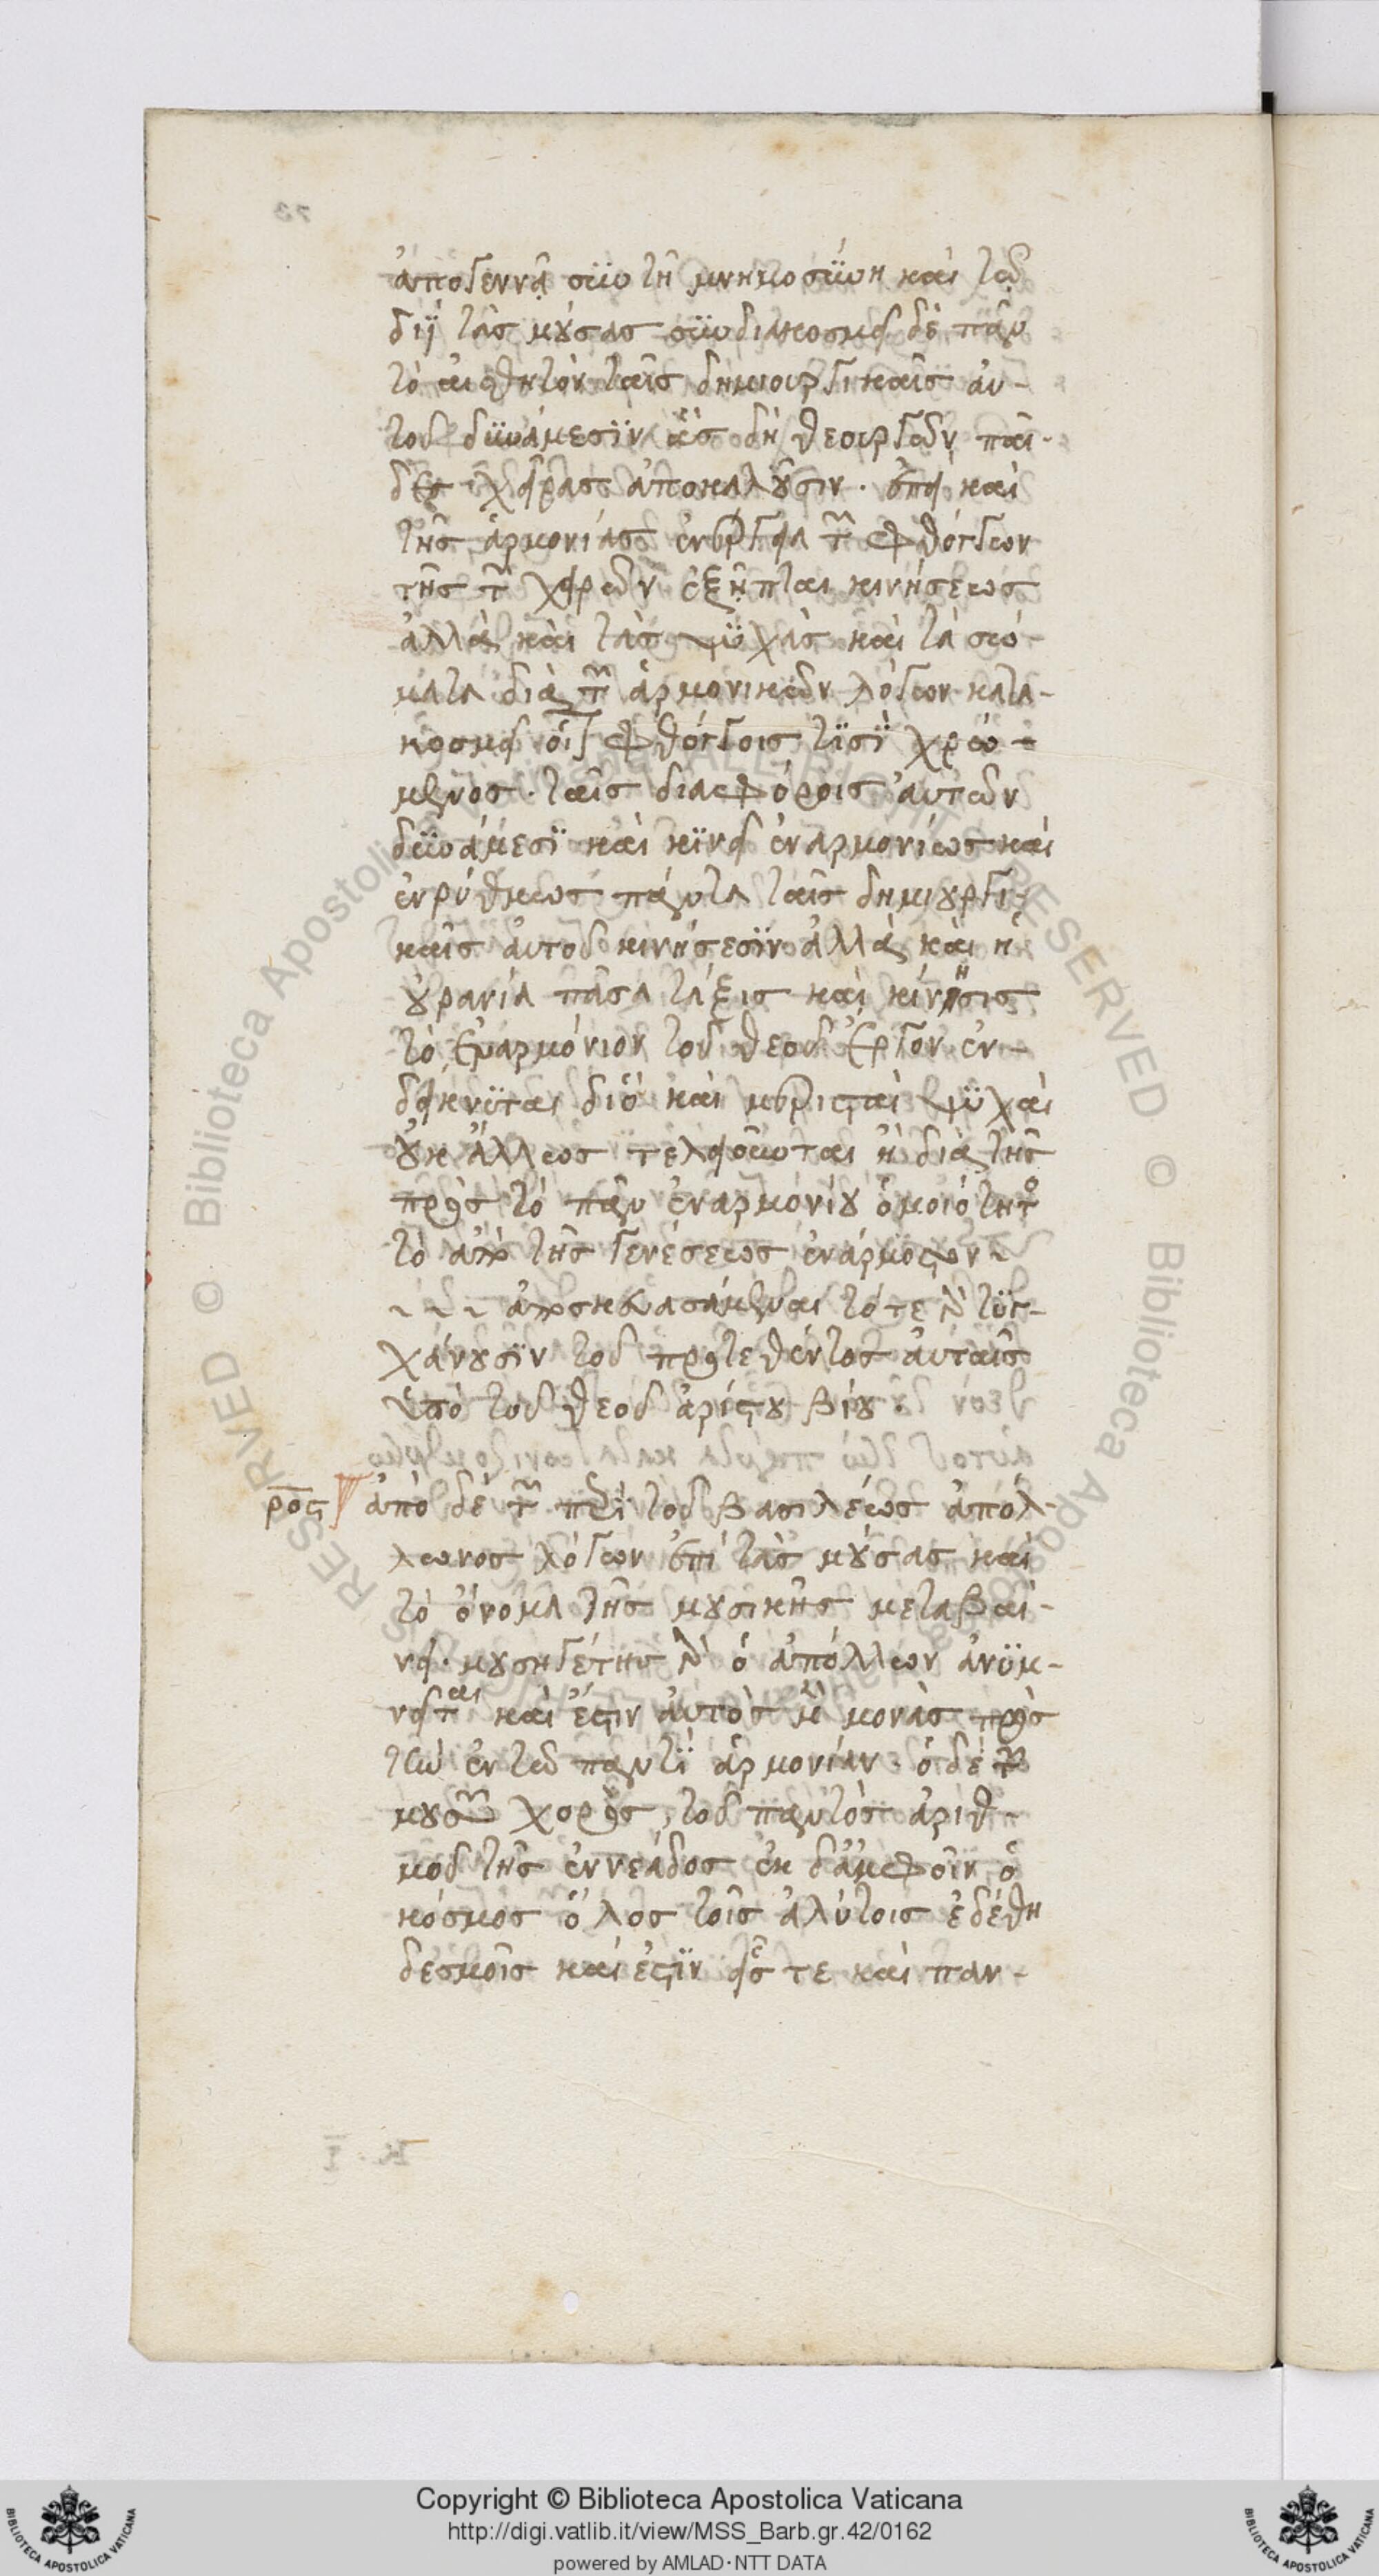 ἀπογεννᾷ σὺν τῇ μνημοσύνῃ καὶ τῷ
διῒ τὰς μούσας συνδιακοσμεῖ δὲ πᾶν
τὸ αἰσθητὸν ταῖς δημιουργικαῖς αὐ-
τοῦ δυνάμεσϊν ἃς δὴ θεουργῶν παῖ-
δες χεῖρας ἀποκαλοῦσιν. ἐπεὶ καὶ
τῆς ἁρμονίας ἐνέργεια τῶν φθόγγων
τῆς τῶν χειρῶν ἐξῆπται κινήσεως
ἀλλὰ καὶ τὰς ψυχὰς καὶ τὰ σώ-
ματα διὰ τῶν ἁρμονικῶν λόγων κατα-
κοσμεῖ οἷς φθόγγοις τϊσῒ χρώ-
μενος. ταῖς διαφόροις αὐτῶν
δυνάμεσϊ καὶ κϊνεῖ ἐναρμονίως καὶ
ἐνρύθμως πάντα ταῖς δημιουργι-
καῖς αὐτοῦ κινήσεσϊν ἀλλὰ καὶ ἡ
οὐρανία πᾶσα τάξις καὶ κίνησις
τὸ ἐναρμόνιον τοῦ θεοῦ ἔργον ἐν-
δείκνυται διὸ καὶ μερισταὶ ψυχαὶ
οὐκ ἄλλως τελειοῦνται ἢ διὰ τῆς
πρὸς τὸ πᾶν ἐναρμονίου ὁμοιότητος
τὸ ἀπὸ τῆς γενέσεως ἐνάρμοστον
ἀποσκευασάμεναι τότε γὰρ τυγ-
χάνουσϊν τοῦ προτεθέντος αὐταῖς
ὑπὸ τοῦ θεοῦ ἀρίστου βίου.
ρος ἀπὸ δὲ τῶν περὶ τοῦ βασιλέως ἀπόλ-
λωνος λόγων ἐπὶ τὰς μούσας καὶ
τὸ ὄνομα τῆς μουσικῆς μεταβαί-
νει. μουσηγέτης γὰρ ὁ ἀπόλλων ἀνυμ-
νεῖται καὶ ἔστιν αὐτὸς μὲν μονὰς πρὸς
τὴν ἐν τῷ παντῒ ἁρμονίαν. ὁ δὲ τῶν
μουσῶν χορὸς, τοῦ παντὸς ἀριθ-
μοῦ τῆς ἐννεάδος ἐκ δ'ἀμφοῖν ὁ
κόσμος ὅλος τοῖς ἀλύτοις ἐδέθη
δεσμοῖς καὶ ἐστϊν εἷς τε καὶ παν-
Copyright © Biblioteca Apostolica Vaticana
http://digi.vatlib.it/view/MSS_Barb.gr.42/0162
powered by AMLAD·NTT DATA